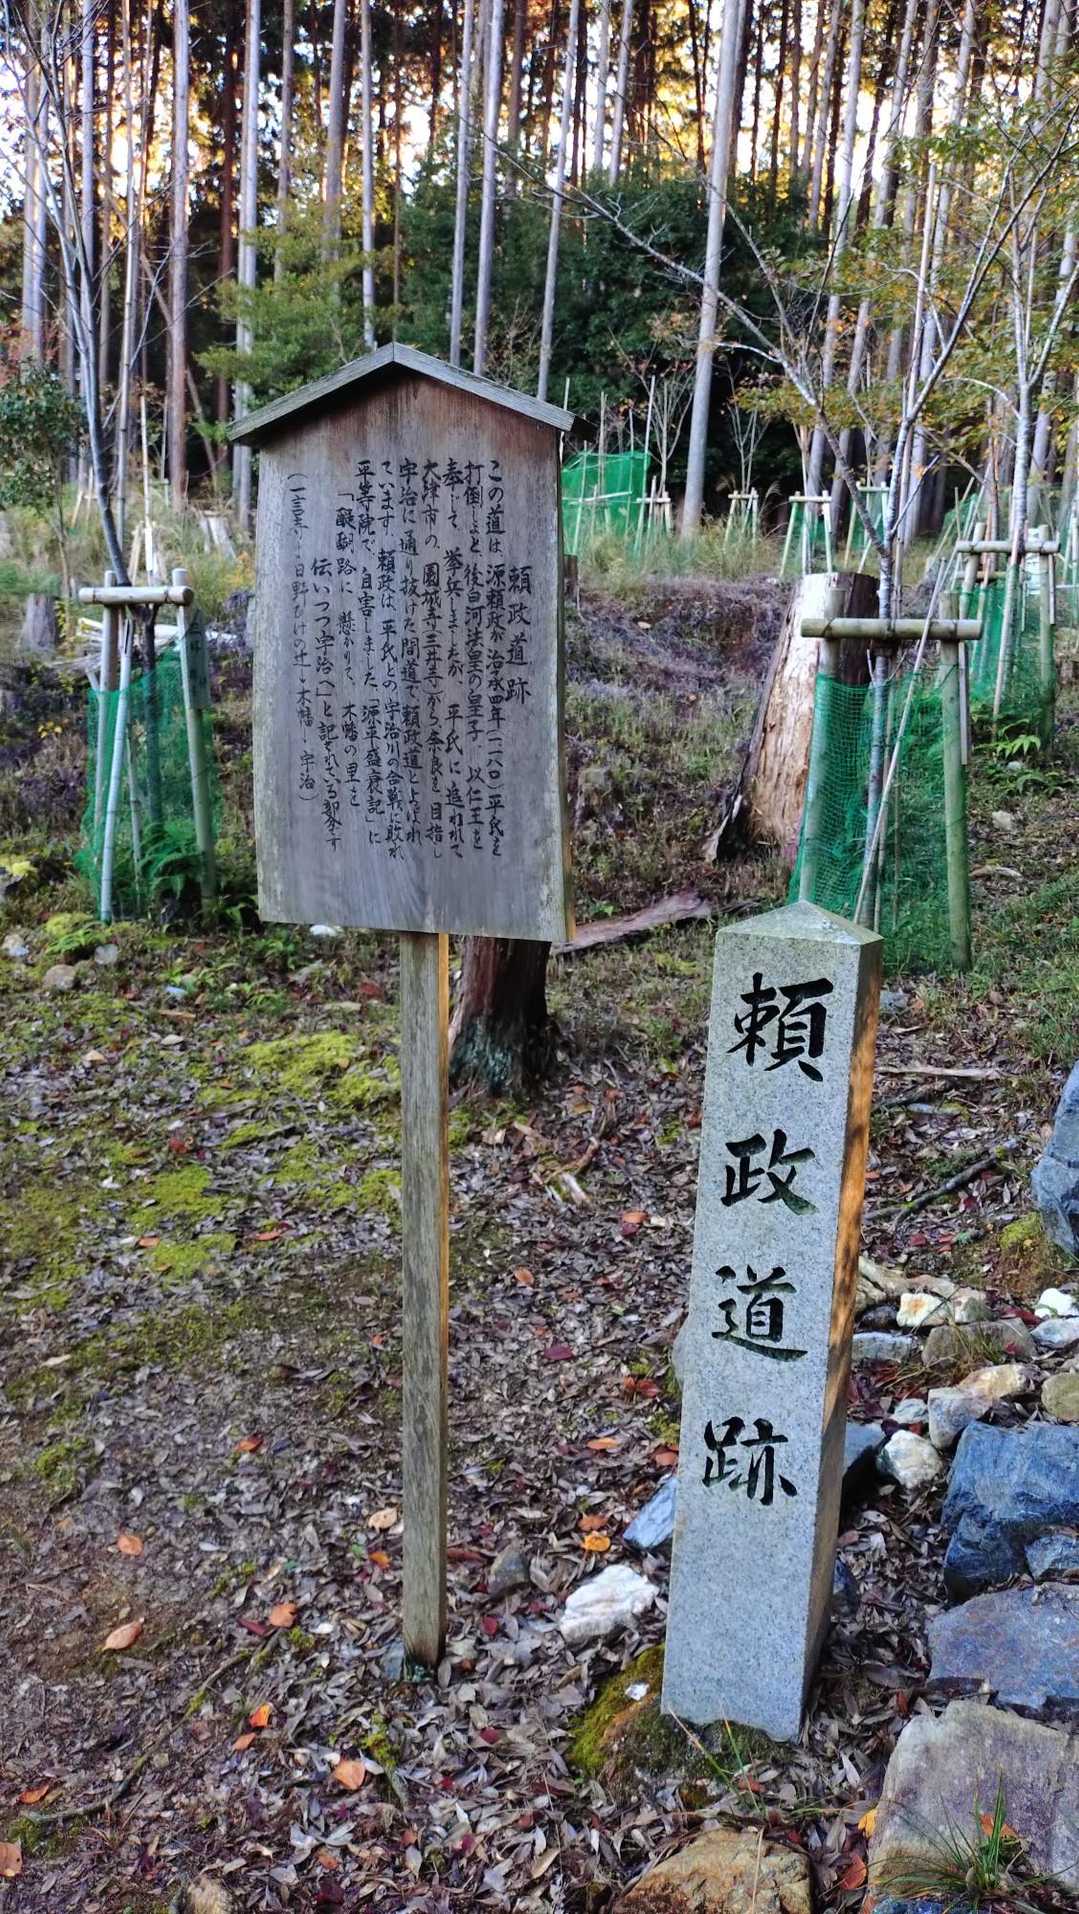 頼政道跡
この道は、源頼政が治承四年(一一八〇)平氏を
打倒しよと、後白河法皇の皇子、以仁王を
奉じて、挙兵しましたが、平氏に追われて
大津市の、園城寺(三井寺)から奈良を目指し
宇治に通り抜けた間道で、頼政道とよばれ
ています。頼政は、平氏との宇治川の合戦に敗れ
平等院で、自害しました。「源平盛衰記」に
「醍醐路に 懸かりて、木幡の里を
伝いつつ宇治へ」と記されている
日野 木幡 宇治)
頼政道跡